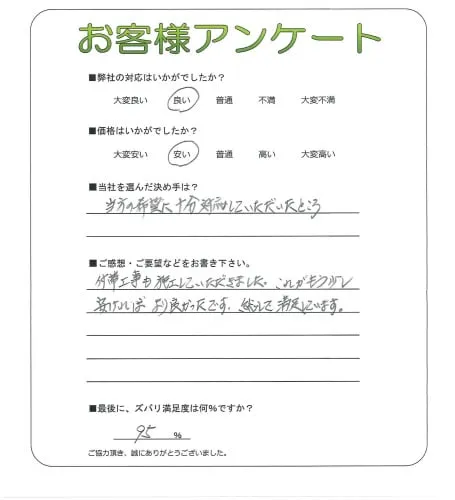 お客様アンケート
■弊社の対応はいかがでしたか？
大変良い 良い 普通 不満 大変不満
■価格はいかがでしたか？
大変安い 安い 普通 高い 大変高い
■当社を選んだ決め手は？
当方の希望に十分対応していただいたところ
■ご感想・ご要望などをお書き下さい。
付帯工事も施工していただきました。これがもう少し
安ければより良かったです。総じて満足しています。
■最後に、ズバリ満足度は何％ですか？
95 ％
ご協力頂き、誠にありがとうございました。